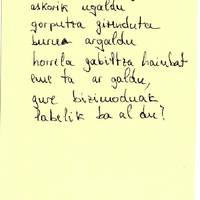 askorik ugaldu
gorputza gizenduta
burua argaldu
horrela gabiltza hainbat
eme ta ar galdu,
gure bizimoduak
labelik ba al du?